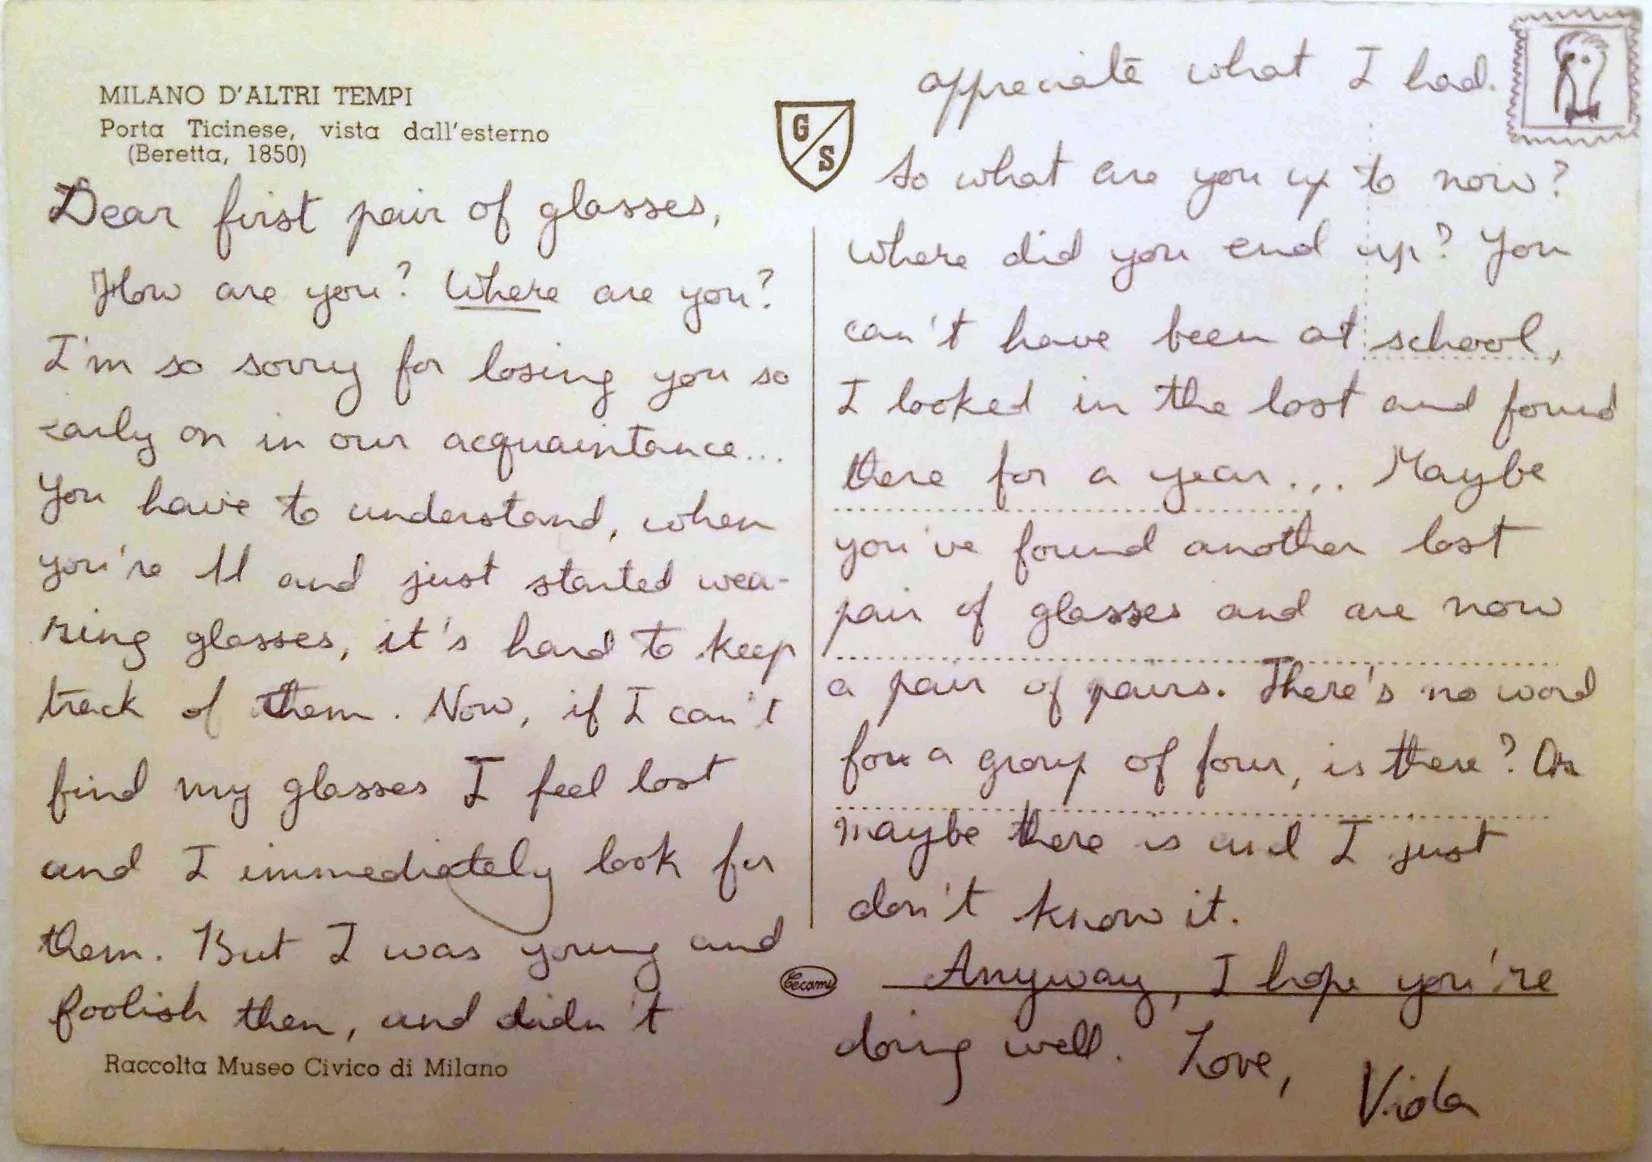 MILANO D'ALTRI TEMPI
Porta Ticinese, vista dall'esterno
(Beretta, 1850)
Dear first pair of glasses,
How are you? Where are you?
I'm so sorry for losing you so
early on in our acquaintance...
You have to understand, when
you're 11 and just started wea-
ring glasses, it's hard to keep
track of them. Now, if I can't
find my glasses I feel lost
and I immediately look for
them. But I was young and
foolish then, and didn't
Raccolta Museo Civico di Milano
G
S
Cecami
appreciate what I had.
So what are you up to now?
Where did you end up? You
can't have been at school,
I looked in the lost and found
there for a year... Maybe
you've found another lost
pair of glasses and are now
a pair of pairs. There's no word
for a group of four, is there? Or
maybe there is and I just
don't know it.
Anyway, I hope you're
doing well. Love,
Viola